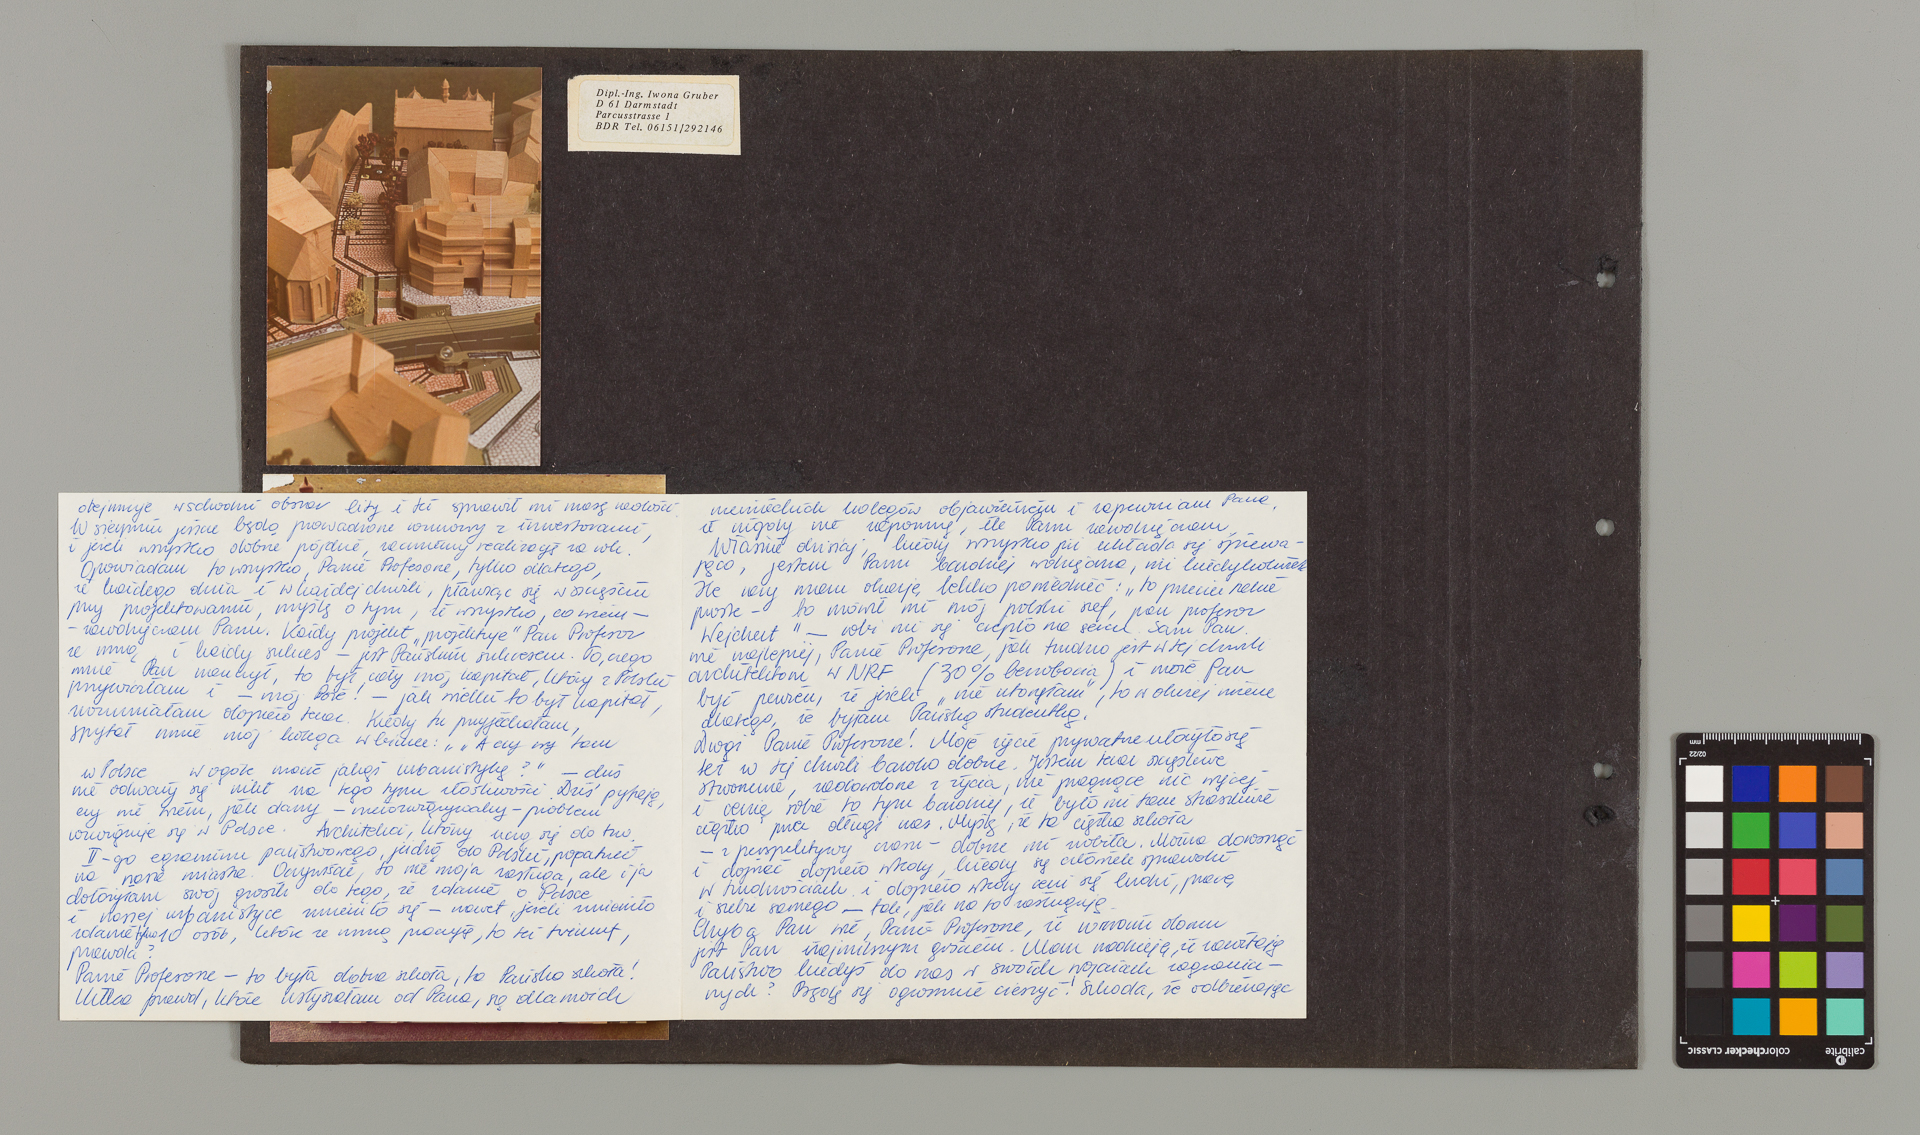 Dipl.-Ing. Iwona Gruber
D 61 Darmstadt
Parcusstrasse 1
BDR Tel. 06151/292146
obejmuje wschodni obszar City i też sprawił mi masę radości.
W sierpniu jeszcze będą prowadzone rozmowy z inwestorami,
i jeśli wszystko dobrze pójdzie, zaczniemy realizację za rok.
Opowiadam to wszystko, Panie Profesorze, tylko dlatego,
że każdego dnia i w każdej chwili, pławiąc się w szczęściu
przy projektowaniu, myślę o tym, że wszystko, co wiem –
– zawdzięczam Panu. Każdy projekt „projektuje” Pan Profesor
ze mną i każdy sukces – jest Pańskim sukcesem. To, czego
mnie Pan nauczył, to był cały mój kapitał, który z Polski
przywiozłam i – mój Boże! – jaki wielki to był kapitał,
zrozumiałam dopiero teraz. Kiedy tu przyjechałam,
spytał mnie mój kolega w biurze: „A czy wy tam
w Polsce w ogóle macie jakąś urbanistykę?” – dziś
nie odważy się nikt na tego typu złośliwości. Dziś pytają,
czy nie wiem, jak dany – nierozwiązywalny – problem
rozwiązuje się w Polsce. Architekci, którzy uczą się do tzw.
II-go egzaminu państwowego, jadą do Polski, popatrzeć
na nasze miasta. Oczywiście, to nie moja zasługa, ale i ja
dołożyłam swój grosik do tego, że zdanie o Polsce
i naszej urbanistyce zmieniło się – nawet, jeśli zmieniło
zdanie tylko 10 osób, które ze mną pracują, to też triumf,
prawda?
Panie Profesorze – to była dobra szkoła, to Pańska szkoła!
Kilka prawd, które usłyszałam od Pana, są dla moich
niemieckich kolegów objawieniem i zapewniam Pana,
że nigdy nie zapomnę, ile Panu zawdzięczam.
Właśnie dzisiaj, kiedy wszystko mi układa się śpiewa-
jąco, jestem Panu bardziej wdzięczna, niż kiedykolwiek.
Ile razy mam okazję, lekko powiedzieć: „to przecież całkiem
proste – to mówił mi mój polski szef, pan profesor
Wejchert” – robi mi się ciepło na sercu. Sam Pan
wie najlepiej, Panie Profesorze, jak trudno jest w tej chwili
architektom w NRF (30% bezrobocia) i może Pan
być pewien, że jeśli „nie utonęłam”, to w dużej mierze
dlatego, że byłam Pańską studentką.
Drogi Panie Profesorze! Moje życie prywatne ułożyło się
też w tej chwili bardzo dobrze. Jestem teraz szczęśliwe
stworzenie, zadowolone z życia, nie pragnące nic więcej –
i cenię sobie to tym bardziej, że było mi tam strasznie
ciężko przez długi czas. Myślę, że ta ciężka szkoła
– z perspektywy czasu – dobrze mi zrobiła. Można dorosnąć
i dojrzeć dopiero wtedy, kiedy się człowiek sprawdzi
w trudnościach i dopiero wtedy ceni się ludzi, pracę
i siebie samego – tak, jak na to zasługują.
Chyba Pan wie, Panie Profesorze, że w moim domu
jest Pan najmilszym gościem. Mam nadzieję, że zawitają
Państwo kiedyś do nas w swoich wojażach zagranicz-
nych? Będę się ogromnie cieszyć! Szkoda, że odbierając
calibrite
colorchecker CLASSIC
mm